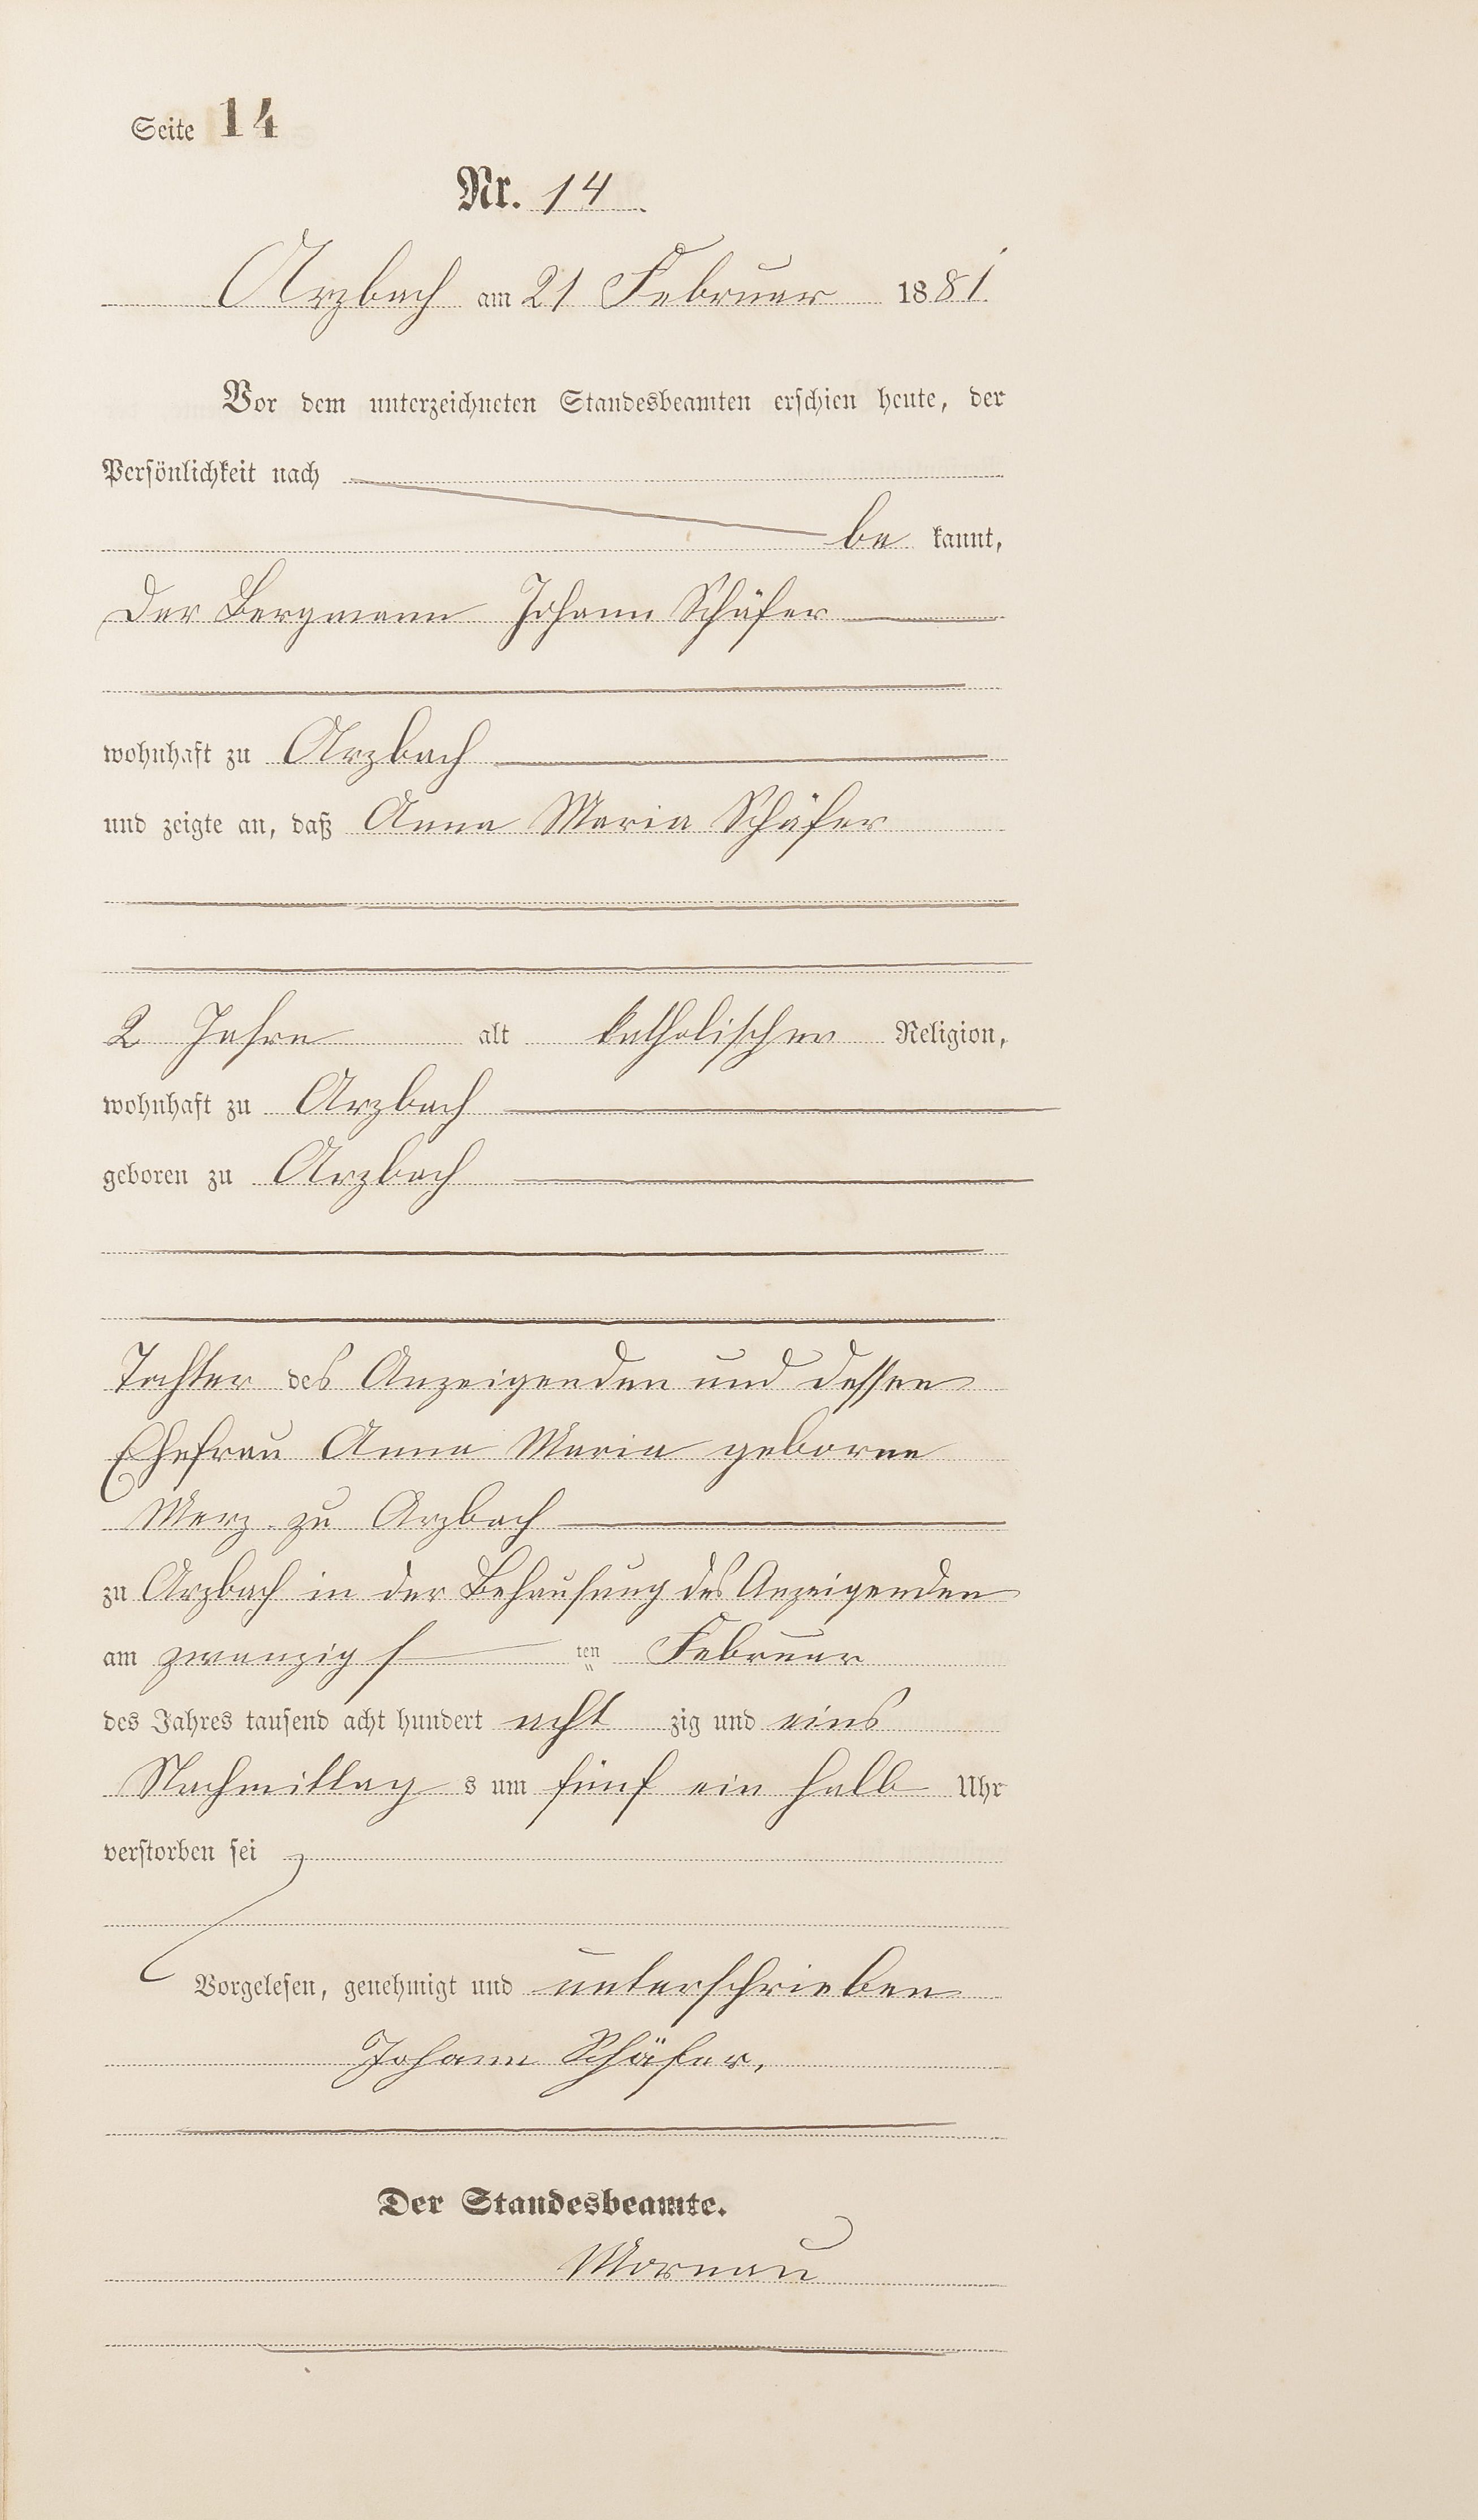 Seite 14
Nr. 14
Arzbach am 21 Februar 1881.
Vor dem unterzeichneten Standesbeamten erschien heute, der
Persönlichkeit nach
be kannt,
der Bergmann Johann Schäfer
wohnhaft zu Arzbach
und zeigte an, daß Anna Maria Schäfer
2 Jahre alt katholischer Religion,
wohnhaft zu Arzbach
geboren zu Arzbach
Tochter des Anzeigenden und dessen
Ehefrau Anna Maria geborne
Merz zu Arzbach
zu Arzbach in der Behausung des Anzeigenden
am zwanzigs ten Februar
des Jahres tausend acht hundert acht zig und eins
Nachmittag s um fünf ein halb Uhr
verstorben sei
Vorgelesen, genehmigt und unterschrieben
Johann Schäfer.
Der Standesbeamte.
Mornau